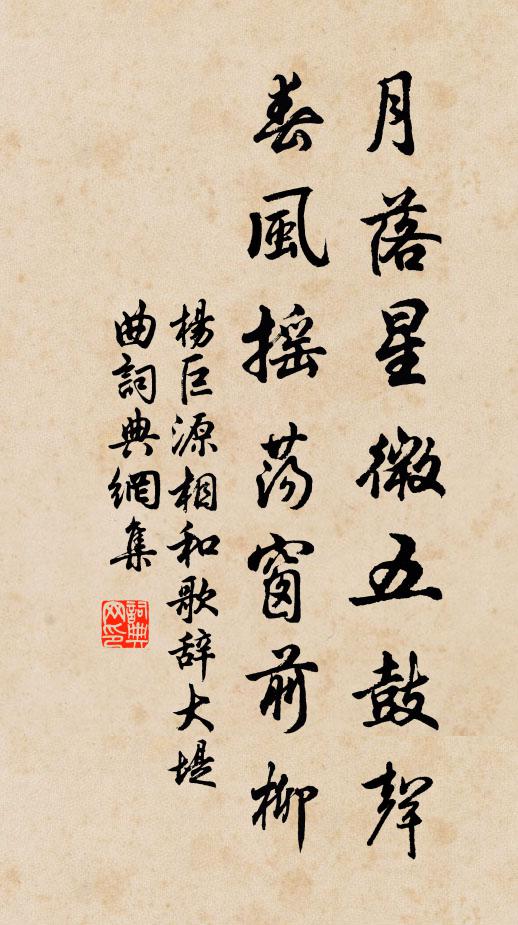 月落星微五鼓聲
春風搖蕩窗前柳
楊巨源相和歌辞大堤
曲詞典網集
詞典
网印